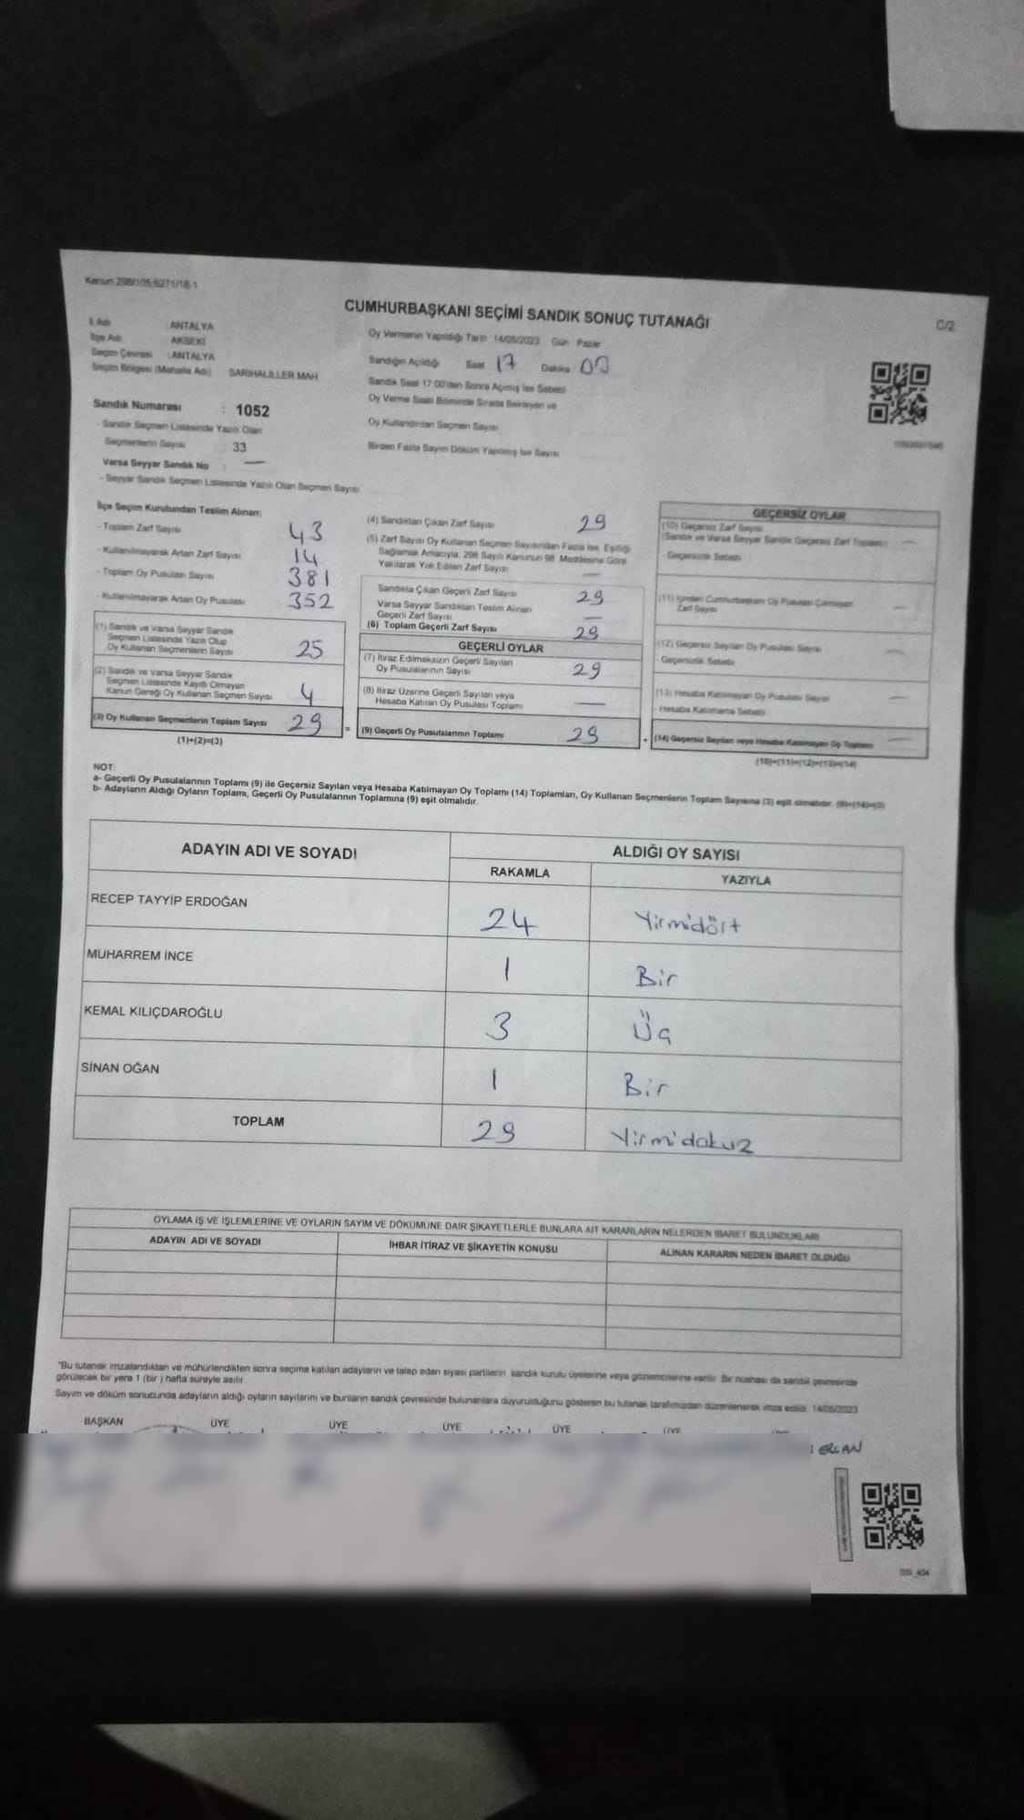 Kanun 298/105;6271/18-1
CUMHURBAŞKANI SEÇİMİ SANDIK SONUÇ TUTANAĞI
C/2
İl Adı ANTALYA
İlçe Adı AKSEKİ
Seçim Çevresi : ANTALYA
Seçim Bölgesi (Mahalle Adı) SARIHALİLLER MAH
Oy Vermenin Yapıldığı Tarih 14/05/2023 Gün Pazar
Sandığın Açıldığı Saat 17 Dakika 00
Sandık Saat 17:00'den Sonra Açılmış İse Sebebi
Oy Verme Saati Bitiminde Sırada Bekleyen ve
Oy Kullandırılan Seçmen Sayısı
Birden Fazla Sayım Döküm Yapılmış İse Sayısı
Sandık Numarası : 1052
- Sandık Seçmen Listesinde Yazılı Olan
Seçmenlerin Sayısı 33
Varsa Seyyar Sandık No : —
- Seyyar Sandık Seçmen Listesinde Yazılı Olan Seçmen Sayısı
İlçe Seçim Kurulundan Teslim Alınan:
- Toplam Zarf Sayısı 43
- Kullanılmayarak Artan Zarf Sayısı 14
- Toplam Oy Pusulası Sayısı 381
- Kullanılmayarak Artan Oy Pusulası 352
(1) Sandık ve Varsa Seyyar Sandık
Seçmen Listesinde Yazılı Olup
Oy Kullanan Seçmenlerin Sayısı 25
(2) Sandık ve Varsa Seyyar Sandık
Seçmen Listesinde Kayıtlı Olmayan
Kanun Gereği Oy Kullanan Seçmen Sayısı 4
(3) Oy Kullanan Seçmenlerin Toplam Sayısı 29
(1)+(2)=(3)
(4) Sandıktan Çıkan Zarf Sayısı 29
(5) Zarf Sayısı Oy Kullanan Seçmen Sayısından Fazla İse, Eşitliği
Sağlamak Amacıyla, 298 Sayılı Kanunun 98. Maddesine Göre
Yakılarak Yok Edilen Zarf Sayısı —
Sandıkta Çıkan Geçerli Zarf Sayısı 29
Varsa Seyyar Sandıktan Teslim Alınan
Geçerli Zarf Sayısı —
(6) Toplam Geçerli Zarf Sayısı 29
GEÇERLİ OYLAR
(7) İtiraz Edilmeksizin Geçerli Sayılan
Oy Pusulalarının Sayısı 29
(8) İtiraz Üzerine Geçerli Sayılan veya
Hesaba Katılan Oy Pusulası Toplamı —
= (9) Geçerli Oy Pusulalarının Toplamı 29
GEÇERSİZ OYLAR
(10) Geçersiz Zarf Sayısı
(Sandık ve Varsa Seyyar Sandık Geçersiz Zarf Toplamı) —
- Geçersizlik Sebebi:
(11) İçinden Cumhurbaşkanı Oy Pusulası Çıkmayan
Zarf Sayısı —
(12) Geçersiz Sayılan Oy Pusulası Sayısı —
- Geçersizlik Sebebi
(13) Hesaba Katılmayan Oy Pusulası Sayısı —
- Hesaba Katılmama Sebebi
+ (14) Geçersiz Sayılan veya Hesaba Katılmayan Oy Toplamı —
(10)+(11)+(12)+(13)=(14)
NOT:
a- Geçerli Oy Pusulalarının Toplamı (9) ile Geçersiz Sayılan veya Hesaba Katılmayan Oy Toplamı (14) Toplamları, Oy Kullanan Seçmenlerin Toplam Sayısına (3) eşit olmalıdır. (9)+(14)=(3)
b- Adayların Aldığı Oyların Toplamı, Geçerli Oy Pusulalarının Toplamına (9) eşit olmalıdır.
ADAYIN ADI VE SOYADI ALDIĞI OY SAYISI
RAKAMLA YAZIYLA
RECEP TAYYİP ERDOĞAN 24 Yirmidört
MUHARREM İNCE 1 Bir
KEMAL KILIÇDAROĞLU 3 Üç
SİNAN OĞAN 1 Bir
TOPLAM 29 Yirmidokuz
OYLAMA İŞ VE İŞLEMLERİNE VE OYLARIN SAYIM VE DÖKÜMÜNE DAİR ŞİKAYETLERLE BUNLARA AİT KARARLARIN NELERDEN İBARET BULUNDUKLARI
ADAYIN ADI VE SOYADI İHBAR İTİRAZ VE ŞİKAYETİN KONUSU ALINAN KARARIN NEDEN İBARET OLDUĞU
"Bu tutanak imzalandıktan ve mühürlendikten sonra seçime katılan adayların ve talep eden siyasi partilerin sandık kurulu üyelerine veya gözlemcilerine verilir. Bir nüshası da sandık çevresinde
görülecek bir yere 1 (bir) hafta süreyle asılır.
Sayım ve döküm sonucunda adayların aldığı oyların sayılarını ve bunların sandık çevresinde bulunanlara duyurulduğunu gösteren bu tutanak tarafımızdan düzenlenerek imza edildi. 14/05/2023
BAŞKAN ÜYE ÜYE ÜYE ÜYE ÜYE